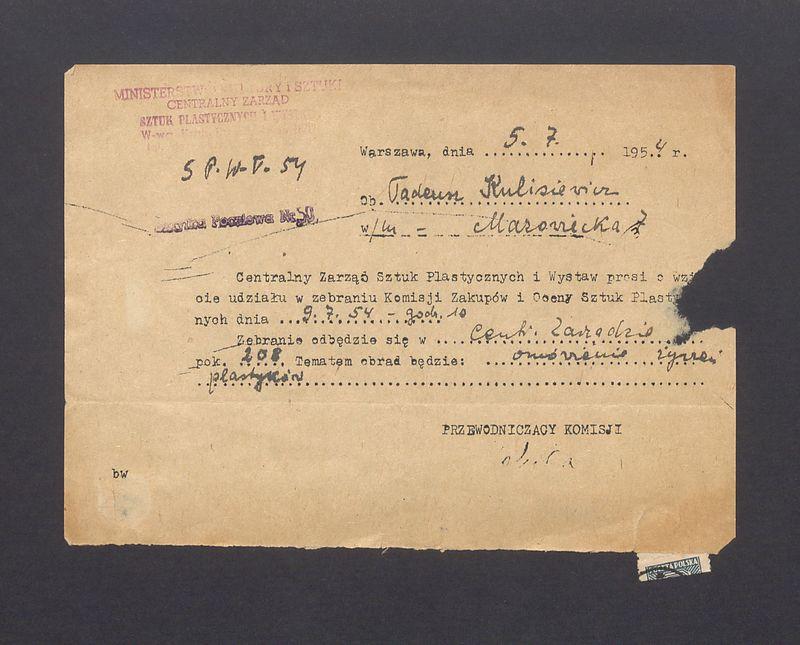 MINISTERSTWO KULTURY I SZTUKI
CENTRALNY ZARZĄD
SZTUK PLASTYCZNYCH I
S P.W-V. 54
Warszawa, dnia 5. 7. 1954 r.
Ob. Tadeusz Kulisiewicz
Skrytka Pocztowa Nr 50,
w/m - Mazowiecka 7
Centralny Zarząd Sztuk Plastycznych i Wystaw prosi o wzi
cie udziału w zebraniu Komisji Zakupów i Oceny Sztuk Plasty
nych dnia 9. 7. 54 - godz. 10
Zebranie odbędzie się w Centr. Zarządzie
pok. 208. Tematem obrad będzie: omówienie życzeń
plastyków
PRZEWODNICZĄCY KOMISJI
bw
POCZTA POLSKA